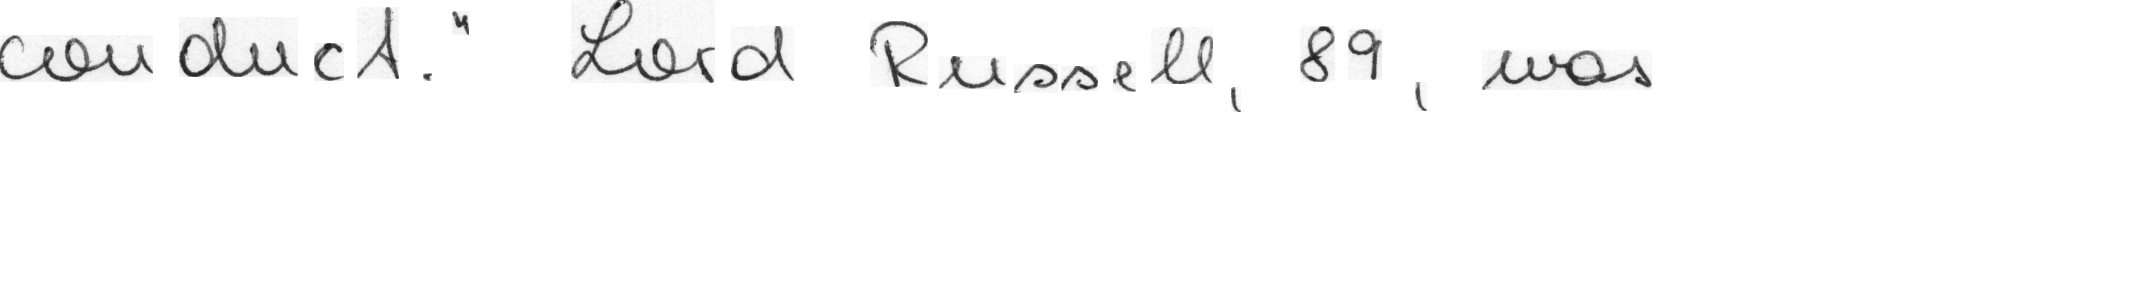 conduct." Lord Russell, 89, was